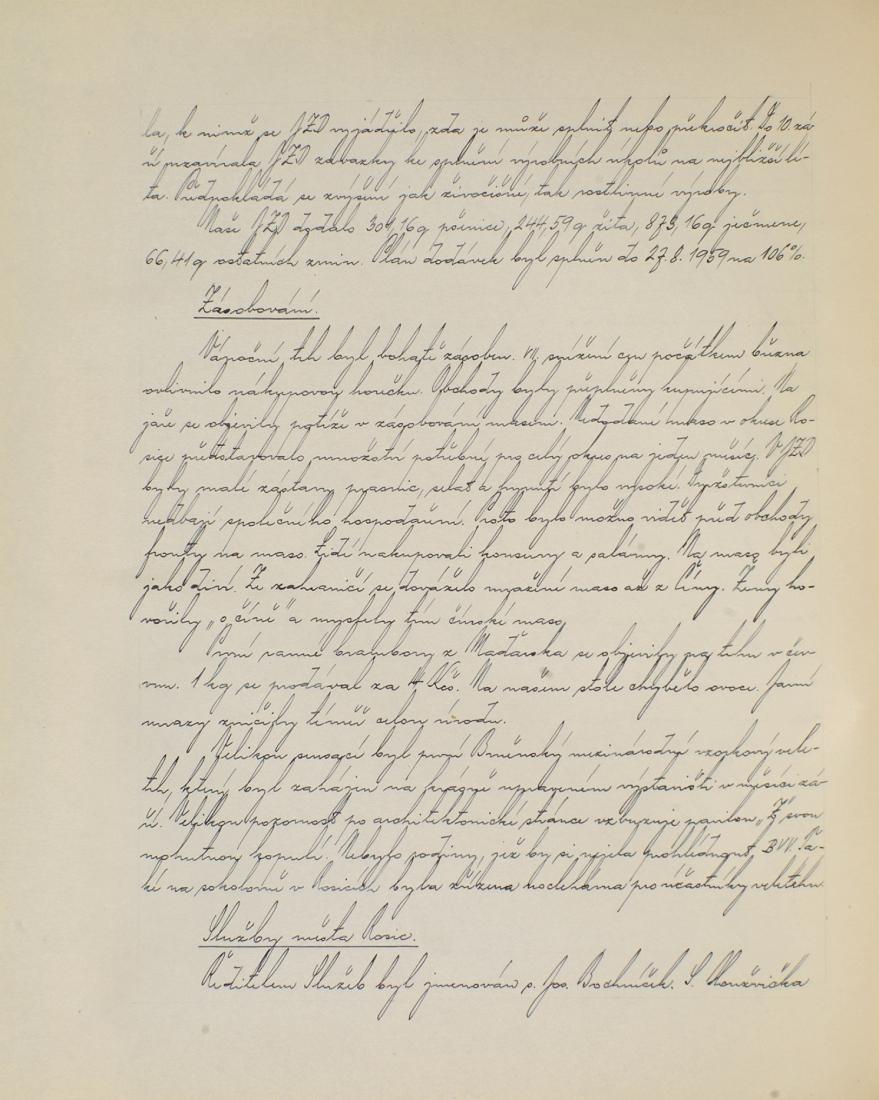 la, k nimž se JZD vyjádřilo, zda je může splnit nebo překročit. Do 10. zá-
ří uzavírala JZD závazky ke splnění výrobních úkolů na nejbližší lé-
ta. Předpokládá se zvýšení jak živočišné, tak rostlinné výroby.
Naše JZD dodalo 301,16 q pšenice, 244,59 q žita, 873,16 q ječmene,
66,41 q ostatních zrnin. Plán dodávek byl splněn do 27.8. 1959 na 106%.
Zásobování.
Vánoční trh byl bohatě zásoben. VII. snížení cen počátkem března
ovlivnilo nákupovou horečku. Obchody byly přeplněny kupujícími. Na
jaře se objevily potíže v zásobování masem. Nedodané maso v okrese Ro-
sice představovalo množství potřebné pro celý okres na jeden měsíc. V JZD
byly malé zástavy prasnic, selat a úhyn byl vysoké.
nedbají společného hospodaření. Proto bylo možno vidět před obchody
fronty na maso. Lidé nakupovali konservy a salámy. Na maso byli
jako diví. Ze zahraničí se dováželo mražené maso až z Číny. Ženy ho-
vořily „o číně" a myslely tím čínské maso.
První ranné brambory z Maďarska se objevily na trhu v červ-
nu. 1 kg se prodával za 4 Kčs. Na našem stole chybělo ovoce. Jarní
mrazy zničily téměř celou úrodu.
Velikou sensací byl první Brněnský mezinárodní vzorkový vele-
trh, který byl zahájen na krásně upraveném výstavišti v měsíci zá-
ří. Velikou pozornost po architektonické stránce vzbuzuje pavilon „Z" svou
mohutnou kopulí. Nebylo rodiny, jež by si nejela prohlédnout BVV. Ta-
ké na sokolovně v Rosicích byla zřízena noclehárna pro účastníky veletrhu.
Služby města Rosic.
Ředitelem Služeb byl jmenován s. Jos. Bochníček. S.